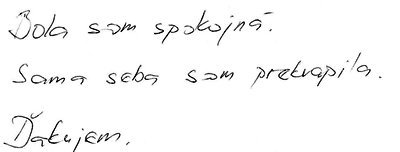 Bola som spokojná.
Sama seba som prekvapila.
Ďakujem.